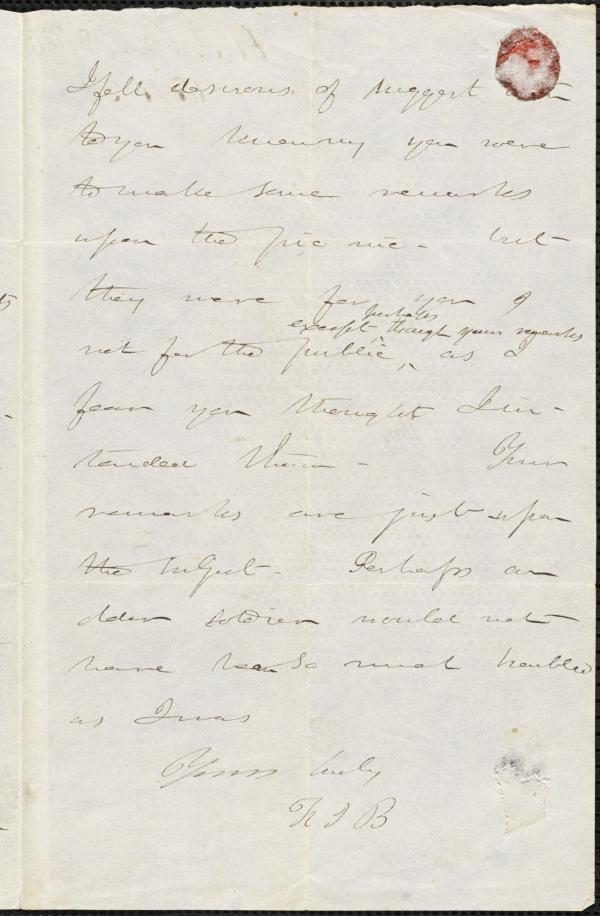 I felt desirous of suggest
to you knowing you were
to make some remarks
upon the pic nic - but
they were for you &
except perhaps though your remarks
not for the public, as I
fear you thought I in-
tended them - Your
remarks are just upon
the subject - Perhaps an
older soldier would not
have been so much troubled
as I was
Yours truly